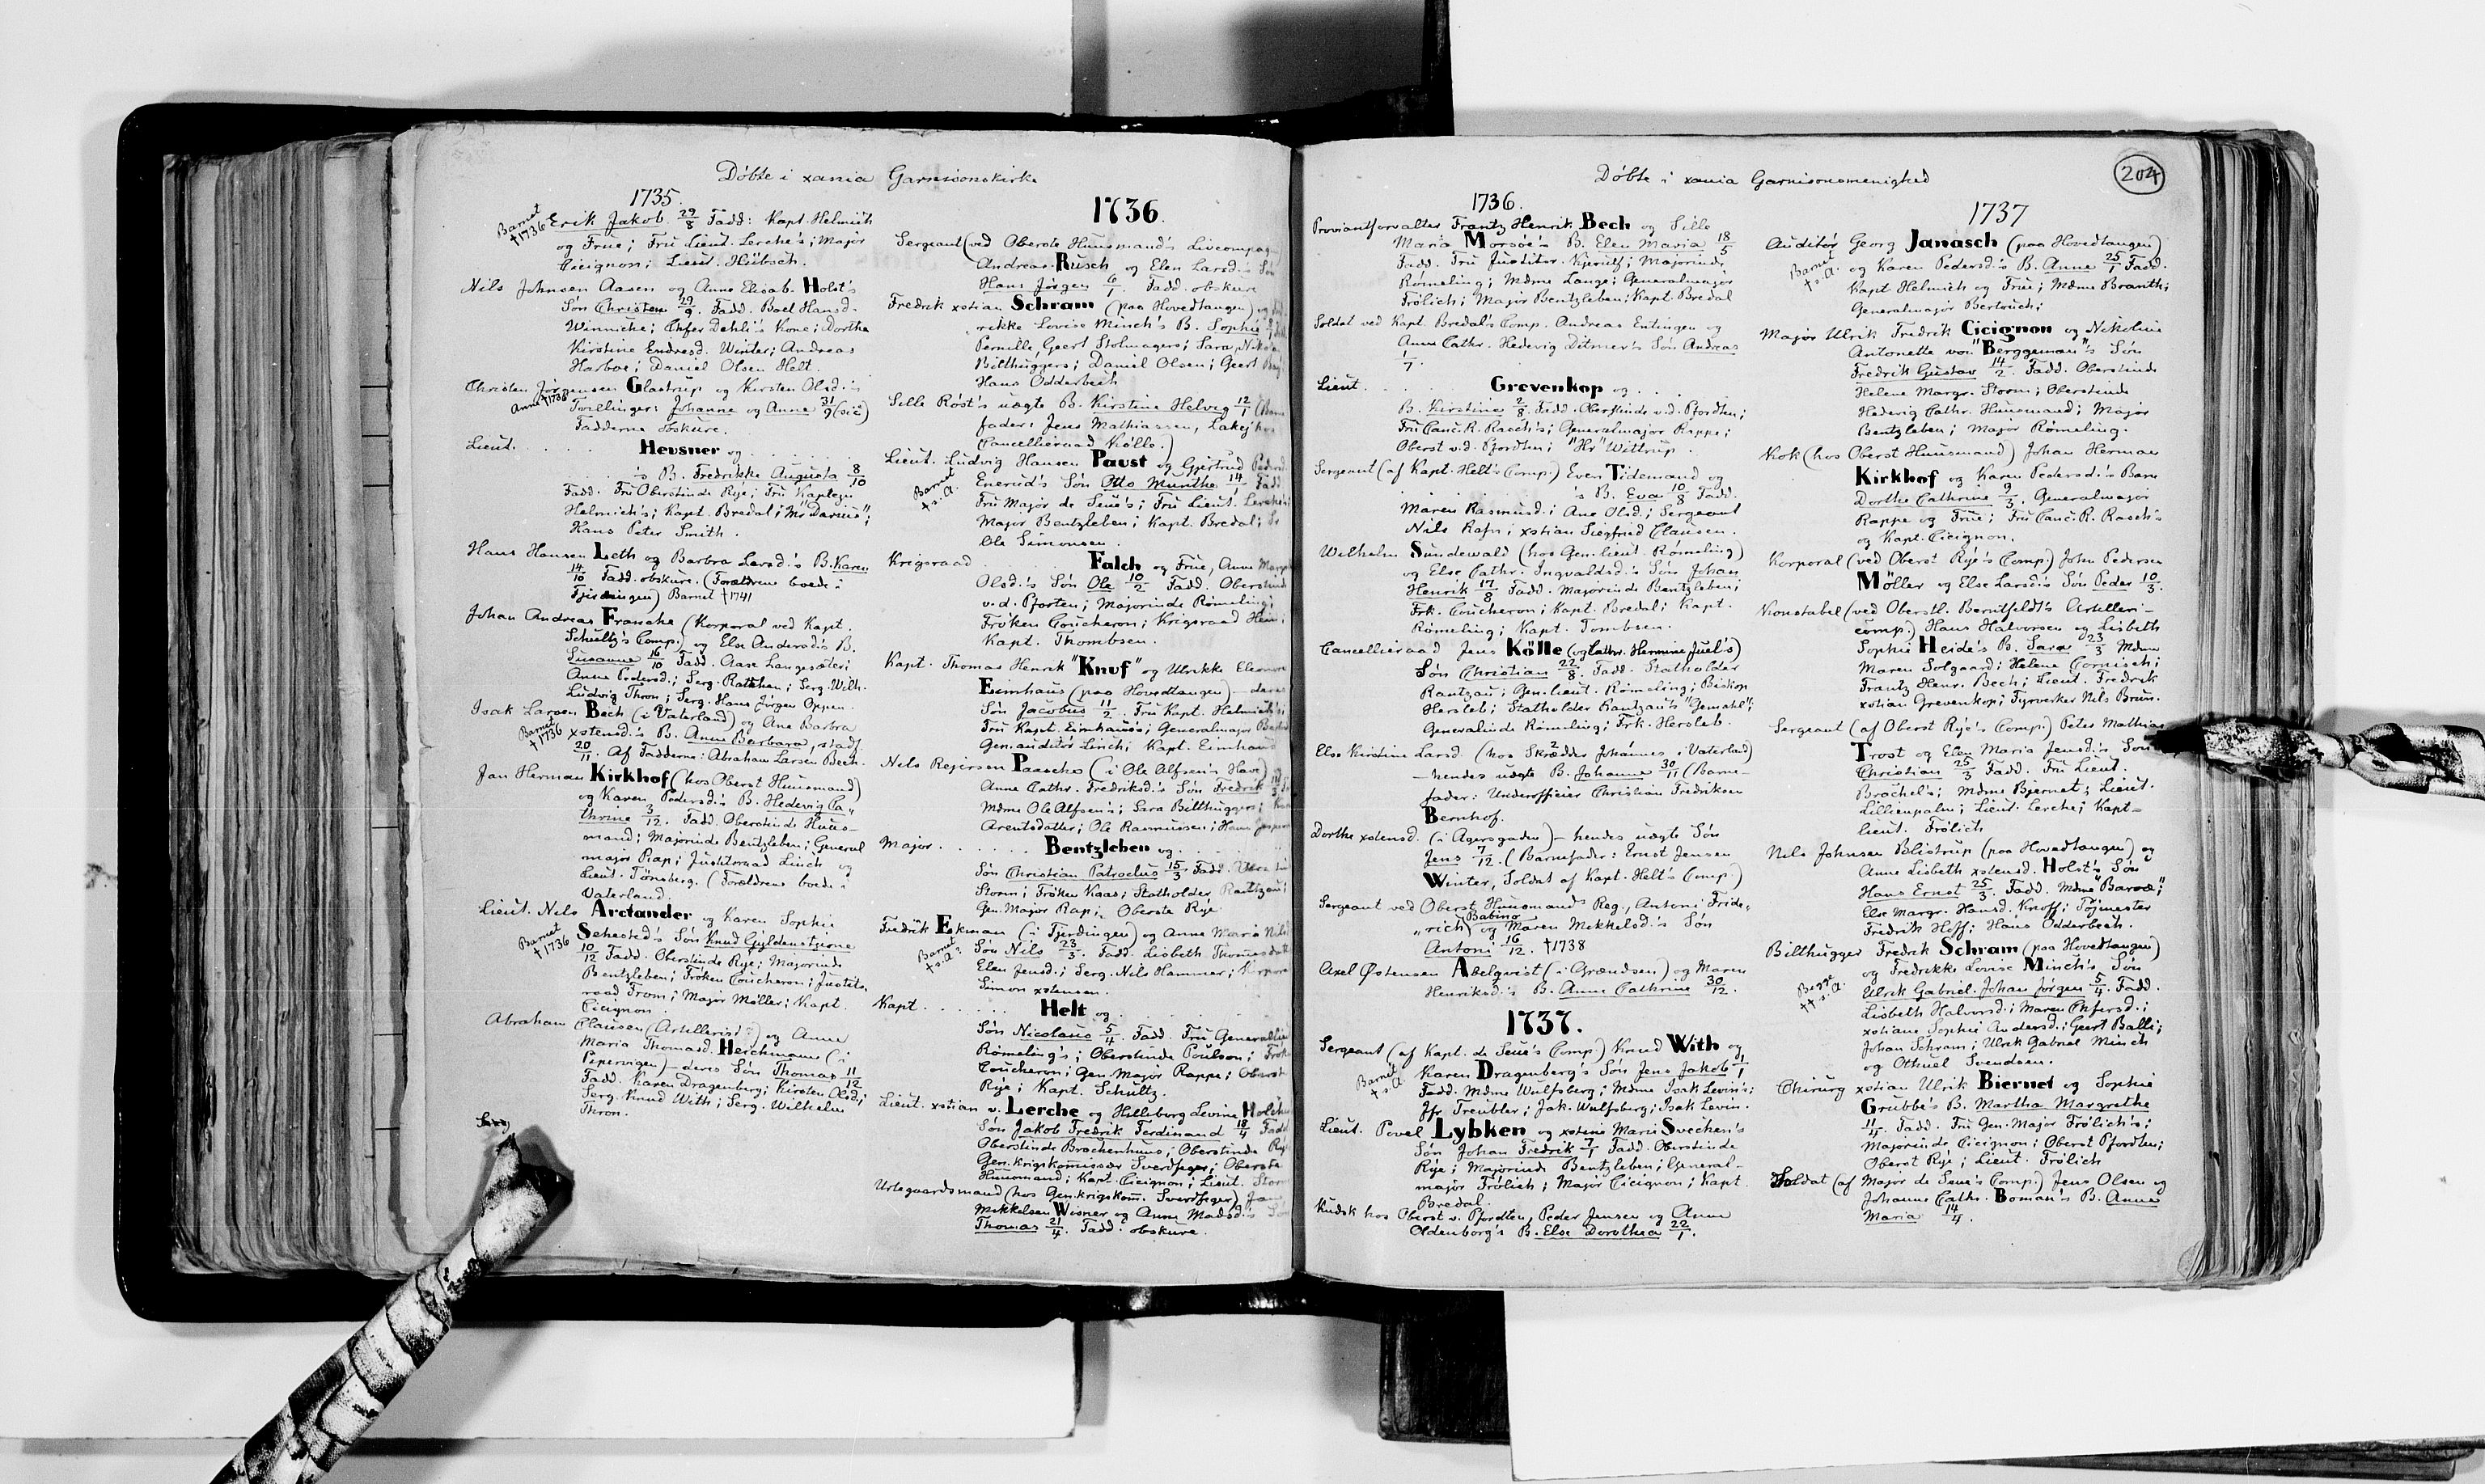 Döbte i xania Garnisonskirke
1735.
Barnet
†1736
Erik Jakob 29/8 Fadd: Kapt. Helmich
og Frue; Fru Lieut. Lerche's; Major
Cicignon; Lieut. Hübsch.
Nils Johnsen Aasen og Anne Elisab. Holst's
Søn Christen 29/9. Fadd. Boel Hansd.
Winniche; Chfer Dehli's Kone; Dorthe
Kirstine Endresd. Winter; Andreas
Harboe; Daniel Olsen Helt.
Christen Jørgensen Glastrup og Kirsten Olsd.'s
Anne †1738
Tvillinger: Johanne og Anne 31/9 (sic)
Fadderne obskure.
Lieut. . . . Hevsner og . . . .
's B. Fredrikke Augusta 8/10
Fadd. Fru Oberstinde Rye; Fru Kaptejn
Helmich's; Kapt. Bredal;
Hans Peter Smith.
Hans Hansen Leth og Barbra Larsd.'s B. Karen
14/10 Fadd. obskure. (Forældrene boede i
Fjerdingen) Barnet †1741
Johan Andreas Francke (Korporal ved Kapt.
Schultz's Comp.) og Else Andersd's B.
Susanne 16/10 Fadd. Aase Langsæter;
Anne Pedersd.; Serg. Rathhen; Serg. Wilh.
Ludvig Thron; Serg. Hans Jørgen Oppen.
Isak Larsen Bech (i Vaterland) og Ane Barbra
Barnet
†1736
xstensd.'s B. Anne Barbara, stadf.
20/11. Af Fadderne: Abraham Larsen Bech.
Jan Herman Kirkhof (hos Oberst Huusmand)
og Karen Pedersd.'s B. Hedevig Ca=
thrine 3/12. Fadd. Oberstinde Huus-
mand; Majorinde Bentzleben; General
major Rap; Justitsraad Linch og
Lieut. Tønsberg. (Forældrene boede i
Vaterland.
Lieut. Nils Arctander og Karen Sophie
Barnet
†1736
Sehested's Søn Knud Gyldenstierne
10/12 Fadd. Oberstinde Rye; Majorinde
Bentzleben; Frøken Coucheron; Justits.
raad From; Major Møller; Kapt.
Cicignon.
Abraham Clausen (Artillerist?) og Anne
Maria Thomasd. Herchmann (i
Pipervigen) – deres Søn Thomas 11/12
Fadd. Karen Dragenberg; Kirsten Olsd.;
Serg. Knud With; Serg. Wilhelm
Thron.
1736.
Sergeant (ved Oberste Huusmand's Livcompagni
Andreas Rusch og Elen Larsd.'s Søn
Hans Jørgen 6/1. Fadd. obskure
Fredrik xstian Schram (paa Hovedtangen) og
rikke Lovise Minch's B. Sophie
Pernille, Geert Stolmagers; Sara
Bilthuggers; Daniel Olsen; Geert
Hans Odderbech
Sille Røst's uægte B. Kirstine Helvig 12/1
fader: Jens Mathiassen, Lakej hos
Cancelliraad Kølle.)
Lieut. Ludvig Hansen Paust og Gjertrud
Barnet
† s. A.
Enerud's Søn Otto Munthe 14/1 Fadd
Fru Major de Seue's; Fru Lieut. Lerches;
Major Bentzleben; Kapt. Bredal;
Ole Simonsen.
Krigsraad . . . Falch og Frue, Anne
Olsd.'s Søn Ole 10/2 Fadd. Oberstinde
v. d. Pforten; Majorinde Rømeling;
Frøken Coucheron; Krigsraad
Kapt. Thombsen.
Kapt. Thomas Henrik "Knuf" og Ulrikke Eleonore
Eimhaus (paa Hovedtangen) – deres
Søn Jacobus 11/2. Fru Kapt. Helmich's;
Fru Kapt. Eimhaus's; Generalmajor
Gen.auditör Linch; Kapt. Eimhaus
Nels Rejersen Paasche (i Ole Alfsen's Have) og
Anne Cathr. Fredriksd.'s Søn Fredrik
Mdme Ole Alfsen's; Sara Bilthuggers;
Arentsdatter; Ole Rasmussen; Hans
Major . . . . Bentzleben og . . . .
Søn Christian Patroclus 15/3 Fadd.
Storm; Frøken Kaas; Statholder Rantzau;
Gen. Major Rap; Oberste Rye
Fredrik Ekman (i Fjerdingen) og Anne Maria
Barnet
† s. A.
Søn Nils 23/3. Fadd. Lisbeth
Elen Jensd.; Serg. Nils Hammer;
Simon xstensen.
Kapt. . . . . Helt og . . . .
Søn Nicolaus 5/4. Fadd. Fru
Rømeling's; Oberstinde Poulson;
Coucheron; Gen. Major Rappe; Oberst
Rye; Kapt. Schultz.
Lieut. xstian v. Lerche og Hilleborg Levine
Søn Jakob Fredrik Ferdinand 18/4 Fadd
Oberstinde Brochenhuus; Oberstinde
Gen.krigskommissær Sverdfeger; Oberste
Huusmand; Kapt. Cicignon; Lieut. Storm
Urtegaardsmand (hos Gen.krigskom. Sverdfeger) Jan
Mikkelsen Wisner og Anne Madsd.'s
Thomas 21/4. Fadd. obskure.
Döbte i xania Garnisonsmenighed
204
1736.
Proviantforvalter Frantz Henrik Bech og Sille
Maria Morsøe's B. Elen Maria 18/5
Fadd. Fru Justitsr. Kjerulf; Majorinde
Rømeling; Mdme Lange; Generalmajor
Frölich; Major Bentzleben; Kapt. Bredal
Soldat ved Kapt. Bredal's Comp. Andreas Entingen og
Anne Cathr. Hedevig Ditmer's Søn Andreas
1/7.
Lieut. . . . Grevenkop og . . . .
B. Kirstine 2/8. Fadd. Oberstinde v. d. Pfordten;
Fru Canc. R. Rasch's; Generalmajor Rappe;
Oberst v. d. Pfordten; "Hr" Wittrup.
Sergeant (af Kapt. Helt's Comp.) Even Tidemand og
's B. Eva 10/8 Fadd.
Maren Rasmusd.; Ane Olsd.; Sergeant
Nils Rafn; xstian Siegfried Clausen.
Wilhelm Sundewald (hos Gen.lieut. Rømeling)
og Else Cathr. Ingvaldsd.'s Søn Johan
Henrik 17/8 Fadd. Majorinde Bentzleben;
Frk. Coucheron; Kapt. Bredal; Kapt.
Rømeling; Kapt. Tombsen.
Cancelliraad Jens Kölle (og Cathr. Hermine Juel's)
Søn Christian 22/8. Fadd. Statholder
Rantzau; Gen.lieut. Rømeling; Biskop
Hersleb; Statholder Rantzau's "Gemahl";
Generalinde Rømeling; Frk. Hersleb.
Else Kirstine Larsd. (hos Skrædder Johannes i Vaterland)
– hendes uægte B. Johanne 30/11 (Barne-
fader: Underofficier Christian Fredriksen
Bernhof.
Dorthe xstensd. (i Agersgaden) – hendes uægte Søn
Jens 7/12. (Barnefader: Ernst Jensen
Winter, Soldat af Kapt. Helt's Comp.)
Sergeant ved Oberst Huusmands Reg., Antoni Fride=
Babino
"rich) og Maren Mikkelsd.'s Søn
Antoni 16/12. †1738
Axel Østensen Adelqvist (i Grændsen) og Maren
Henriksd.'s B. Anne Cathrine 30/12.
1737.
Sergeant (af Kapt. de Seue's Comp.) Knud With og
Barnet
† s. A.
Karen Dragenberg's Søn Jens Jakob 1/1
Fadd. Mdme Wulfsberg; Mdme Isak Levin's;
Jfr Treubler; Jak. Wulfsberg; Isak Levin.
Lieut. Povel Lybken og xstine Marie Svechen's
Søn Johan Fredrik 7/1 Fadd. Oberstinde
Rye; Majorinde Bentzleben; General-
major Frölich; Major Cicignon; Kapt.
Bredal.
Kudsk hos Oberst v. Pfordten, Peder Jensen og Anne
Oldenborg's B. Else Dorothea 22/1.
1737
Auditör Georg Janasch (paa Hovedtangen)
Barnet
† s. A.
og Karen Pedersd.'s B. Anne 25/1 Fadd.
Kapt. Helmich og Frue; Mdme Branth;
Generalmajor Bertouch;
Major Ulrik Fredrik Cicignon og Nikoline
Antonette von "Berggeman"s Søn
Fredrik Gustav 14/2. Fadd. Oberstinde
Helene Margr. Storm; Oberstinde
Hedevig Cathr. Huusmand; Major
Bentzleben; Major Rømeling.
Kok (hos Oberst Huusmand) Johan Herman
Kirkhof og Karen Pedersd.'s Barn
Dorthe Cathrine 9/3. Generalmajor
Rappe og Frue; Fru Canc. R. Rasch's
og Kapt. Cicignon.
Korporal (ved Oberst Rye's Comp.) John Pedersen
Möller og Else Larsd.'s Søn Peder 10/3.
Konstabel (ved Oberstl. Berntfeldt's Artilleri-
comp.) Hans Halvorsen og Lisbeth
Sophie Heide's B. Sara 23/3 Mdme
Maren Solgaard; Helene Cornisch;
Frantz Henr. Bech; Lieut. Fredrik
xstian Grevenkop; Fyrverker Nils Bruun.
Sergeant (af Oberst Rye's Comp.) Peter Mathias
Trost og Elen Maria Jensd.'s Søn
Christian 25/3 Fadd. Fru Lieut.
Brochel's; Mdme Bjernet; Lieut.
Lillienpalm; Lieut. Lerche; Kapt=
lieut. Frölich
Nils Johnsen Blistrup (paa Hovedtangen) og
Anne Lisbeth xstensd. Holst's Søn
Hans Ernst 25/3. Fadd. Mdme "Baroe";
Else Margr. Hansd. Knoff; Töjmester
Fredrik Hoff; Hans Odderbech.
Billthugger Fredrik Schram (paa Hovedtangen)
og Fredrikke Lovise Minch's Søn
Begge
†† s. A.
Ulrik Gabriel. Johan Jørgen 5/4. Fadd.
Lisbeth Halvorsd.; Maren Chfersd.;
xstiane Sophie Andersd.; Geert Balli;
Johan Schram; Ulrik Gabriel Minch
og Othuel Svendsen.
Chirurg xstian Ulrik Biernet og Sophie
Grubbe's B. Martha Margrethe
11/4. Fadd. Fru Gen. Major Frölich's;
Majorinde Cicignon; Oberst Pfordten;
Oberst Rye; Lieut. Frölich
Soldat (af Major de Seue's Comp.) Jens Olsen og
Johanne Cathr. Boman's B. Anne
Maria 14/4.